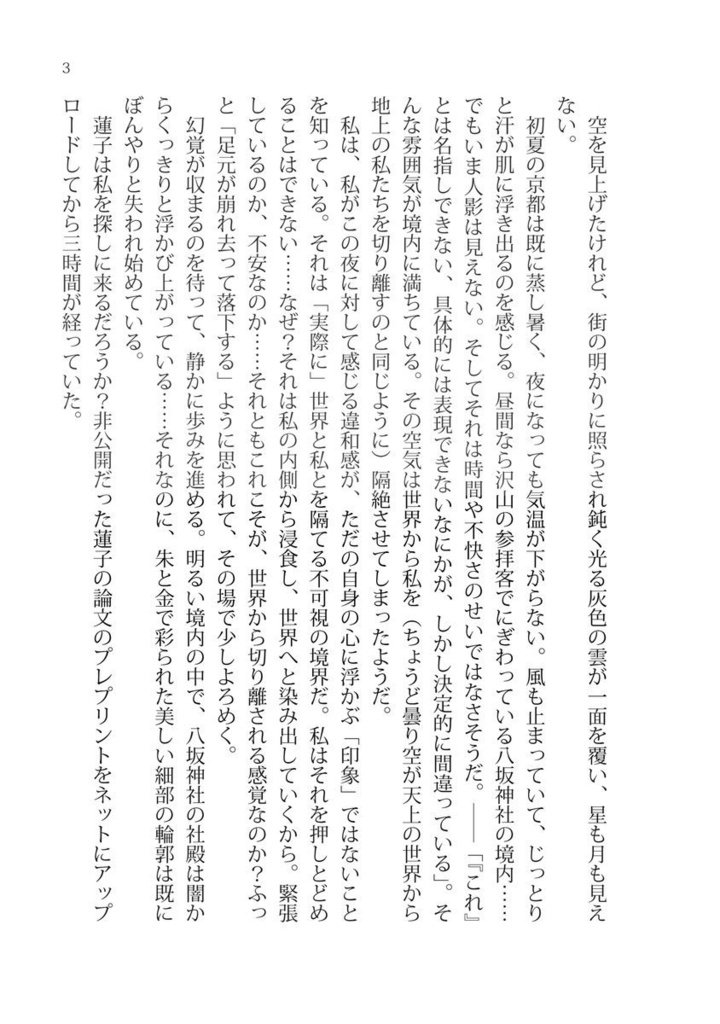 3
空を見上げたけれど、街の明かりに照らされ鈍く光る灰色の雲が一面を覆い、星も月も見え
ない。
初夏の京都は既に蒸し暑く、夜になっても気温が下がらない。風も止まっていて、じっとり
と汗が肌に浮き出るのを感じる。昼間なら沢山の参拝客でにぎわっている八坂神社の境内……
でもいま人影は見えない。そしてそれは時間や不快さのせいではなさそうだ。――「『これ』
とは名指しできない、具体的には表現できないなにかが、しかし決定的に間違っている」。そ
んな雰囲気が境内に満ちている。その空気は世界から私を（ちょうど曇り空が天上の世界から
地上の私たちを切り離すのと同じように）隔絶させてしまったようだ。
私は、私がこの夜に対して感じる違和感が、ただの自身の心に浮かぶ「印象」ではないこと
を知っている。それは「実際に」世界と私とを隔てる不可視の境界だ。私はそれを押しとどめ
ることはできない……なぜ？それは私の内側から浸食し、世界へと染み出していくから。緊張
しているのか、不安なのか……それともこれこそが、世界から切り離される感覚なのか？ふっ
と「足元が崩れ去って落下する」ように思われて、その場で少しよろめく。
幻覚が収まるのを待って、静かに歩みを進める。明るい境内の中で、八坂神社の社殿は闇か
らくっきりと浮かび上がっている……それなのに、朱と金で彩られた美しい細部の輪郭は既に
ぼんやりと失われ始めている。
蓮子は私を探しに来るだろうか？非公開だった蓮子の論文のプレプリントをネットにアップ
ロードしてから三時間が経っていた。